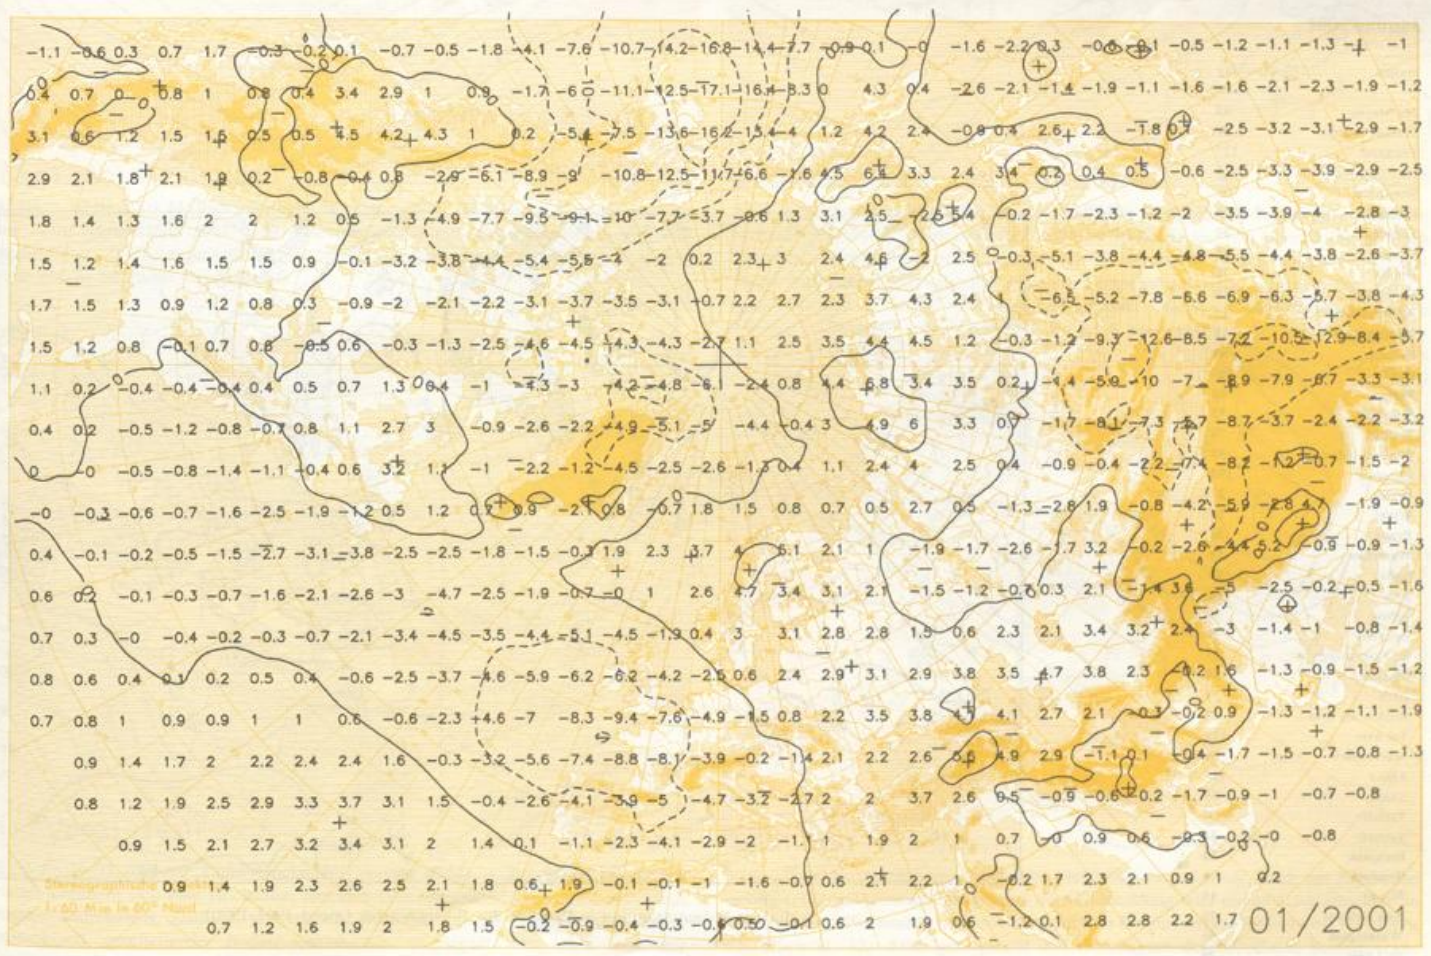 -1.1 -0.6 0.3 0.7 1.7 -0.3 -0.2 0.1 -0.7 -0.5 -1.8 -4.1 -7.6 -10.7 -14.2 -16.8 -14.4 -7.7 -0.9 0.1 -0 -1.6 -2.2 0.3 -0.1 -0.5 -1.2 -1.1 -1.3 -1 -1
0.4 0.7 0 0.8 1 0.8 0.4 3.4 2.9 1 0.9 -1.7 -6 -11.1 -12.5 -17.1 -16.4 -8.3 0 4.3 0.4 -2.6 -2.1 -1.4 -1.9 -1.1 -1.6 -1.6 -2.1 -2.3 -1.9 -1.2
3.1 0.6 1.2 1.5 1.5 0.5 0.5 4.5 4.2 4.3 1 0.2 -5.4 -7.5 -13.6 -16.2 -13.4 -4 1.2 4.2 2.4 -0.9 0.4 2.6 2.2 -1.8 -2.5 -3.2 -3.1 -2.9 -1.7
2.9 2.1 1.8 2.1 1.9 0.2 -0.8 -0.4 0.8 -2.9 -6.1 -8.9 -9 -10.8 -12.5 -11.7 -6.6 -1.6 4.5 6.4 3.3 2.4 3.4 0.2 0.4 0.5 -0.6 -2.5 -3.3 -3.9 -2.9 -2.5
1.8 1.4 1.3 1.6 2 2 1.2 0.5 -1.3 -4.9 -7.7 -9.5 -9.1 -10 -7.7 -3.7 -0.6 1.3 3.1 2.5 5.4 -0.2 -1.7 -2.3 -1.2 -2 -3.5 -3.9 -4 -2.8 -3
1.5 1.2 1.4 1.6 1.5 1.5 0.9 -0.1 -3.2 -3.8 -4.4 -5.4 -5.5 -4 -2 0.2 2.3 3 2.4 4.6 -2 2.5 -0.3 -5.1 -3.8 -4.4 -4.8 -5.5 -4.4 -3.8 -2.6 -3.7
1.7 1.5 1.3 0.9 1.2 0.8 0.3 -0.9 -2 -2.1 -2.2 -3.1 -3.7 -3.5 -3.1 -0.7 2.2 2.7 2.3 3.7 4.3 2.4 1 -6.5 -5.2 -7.8 -6.6 -6.9 -6.3 -5.7 -3.8 -4.3
1.5 1.2 0.8 -0.1 0.7 0.8 -0.5 0.6 -0.3 -1.3 -2.5 -4.6 -4.5 -4.3 -4.3 -2.7 1.1 2.5 3.5 4.4 4.5 1.2 -0.3 -1.2 -9.3 -12.6 -8.5 -7.2 -10.5 -12.9 -8.4 -5.7
1.1 0.2 -0.4 -0.4 -0.4 0.4 0.5 0.7 1.3 0.4 -1 -4.3 -3 -4.2 -4.8 -6.1 -2.4 0.8 4.4 6.8 3.4 3.5 0.2 -4.4 -5.9 -10 -7 -8.9 -7.9 -6.7 -3.3 -3.1
0.4 0.2 -0.5 -1.2 -0.8 -0.7 0.8 1.1 2.7 3 -0.9 -2.6 -2.2 -4.9 -5.1 -5 -4.4 -0.4 3 4.9 6 3.3 0.7 -1.7 -8.1 -7.3 -5.7 -8.7 -3.7 -2.4 -2.2 -3.2
0 -0 -0.5 -0.8 -1.4 -1.1 -0.4 0.6 3.2 1.1 -1 -2.2 -1.2 -4.5 -2.5 -2.6 -1.3 0.4 1.1 2.4 4 2.5 0.4 -0.9 -0.4 -2.2 -7.4 -8.2 -1.2 -0.7 -1.5 -2
-0 -0.3 -0.6 -0.7 -1.6 -2.5 -1.9 -1.2 0.5 1.2 0.7 0.9 -2.1 0.8 -0.7 1.8 1.5 0.8 0.7 0.5 2.7 0.5 -1.3 -2.8 1.9 -0.8 -4.2 -5.9 -2.8 4.7 -1.9 -0.9
0.4 -0.1 -0.2 -0.5 -1.5 -2.7 -3.1 -3.8 -2.5 -2.5 -1.8 -1.5 -0.3 1.9 2.3 3.7 4 5.1 2.1 1 -1.9 -1.7 -2.6 -1.7 3.2 -0.2 -2.6 -4.4 5.2 -0.9 -0.9 -1.3
0.6 0.2 -0.1 -0.3 -0.7 -1.6 -2.1 -2.6 -3 -4.7 -2.5 -1.9 -0.7 -0 1 2.6 4.7 3.4 3.1 2.1 -1.5 -1.2 -0.7 0.3 2.1 -1.4 3.6 -5 -2.5 -0.2 -0.5 -1.6
0.7 0.3 -0 -0.4 -0.2 -0.3 -0.7 -2.1 -3.4 -4.5 -3.5 -4.4 -5.1 -4.5 -1.9 0.4 3 3.1 2.8 2.8 1.5 0.6 2.3 2.1 3.4 3.2 2.4 -3 -1.4 -1 -0.8 -1.4
0.8 0.6 0.4 0.1 0.2 0.5 0.4 -0.6 -2.5 -3.7 -4.6 -5.9 -6.2 -6.2 -4.2 -2.5 0.6 2.4 2.9 3.1 2.9 3.8 3.5 4.7 3.8 2.3 -0.2 1.6 -1.3 -0.9 -1.5 -1.2
0.7 0.8 1 0.9 0.9 1 1 0.6 -0.6 -2.3 -4.6 -7 -8.3 -9.4 -7.6 -4.9 -1.5 0.8 2.2 3.5 3.8 4.1 2.7 2.1 -0.3 -0.2 0.9 -1.3 -1.2 -1.1 -1.9
0.9 1.4 1.7 2 2.2 2.4 2.4 1.6 -0.3 -3.2 -5.6 -7.4 -8.8 -8.1 -3.9 -0.2 -1.4 2.1 2.2 2.6 5.6 4.9 2.9 -1.1 0.1 -0.4 -1.7 -1.5 -0.7 -0.8 -1.3
0.8 1.2 1.9 2.5 2.9 3.3 3.7 3.1 1.5 -0.4 -2.6 -4.1 -3.9 -5 -4.7 -3.2 -2.7 2 2 3.7 2.6 0.5 -0.9 -0.6 -0.2 -1.7 -0.9 -1 -0.7 -0.8
0.9 1.5 2.1 2.7 3.2 3.4 3.1 2 1.4 0.1 -1.1 -2.3 -4.1 -2.9 -2 -1.1 1 1.9 2 1 0.7 -0 0.9 0.6 -0.3 -0.2 -0 -0.8
0.9 1.4 1.9 2.3 2.6 2.5 2.1 1.8 0.6 1.9 -0.1 -0.1 -1 -1.6 -0.7 0.6 2.1 2.2 1 -0.2 1.7 2.3 2.1 0.9 1 0.2
Stereographische
1:60 Mio in 60° Nord
0.7 1.2 1.6 1.9 2 1.8 1.5 -0.2 -0.9 -0.4 -0.3 -0.6 0.5 -0.1 0.6 2 1.9 0.6 -1.2 0.1 2.8 2.8 2.2 1.7 01/2001